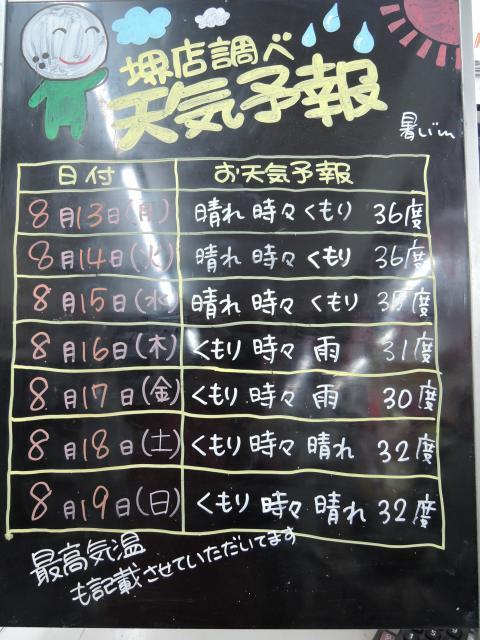 堺店調べ
天気予報
暑いm
日付 お天気予報
8月13日(月) 晴れ 時々 くもり 36度
8月14日(火) 晴れ 時々 くもり 36度
8月15日(水) 晴れ 時々 くもり 35度
8月16日(木) くもり 時々 雨 31度
8月17日(金) くもり 時々 雨 30度
8月18日(土) くもり 時々 晴れ 32度
8月19日(日) くもり 時々 晴れ 32度
最高気温
も記載させていただいてます